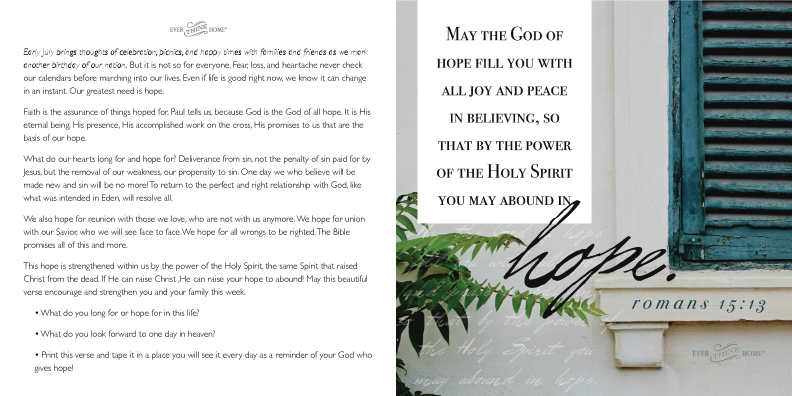 EVER THINE HOME
Early July brings thoughts of celebration, picnics, and happy times with families and friends as we mark
another birthday of our nation. But it is not so for everyone. Fear, loss, and heartache never check
our calendars before marching into our lives. Even if life is good right now, we know it can change
in an instant. Our greatest need is hope.
Faith is the assurance of things hoped for, Paul tells us, because God is the God of all hope. It is His
eternal being, His presence, His accomplished work on the cross, His promises to us that are the
basis of our hope.
What do our hearts long for and hope for? Deliverance from sin, not the penalty of sin paid for by
Jesus, but the removal of our weakness, our propensity to sin. One day we who believe will be
made new and sin will be no more! To return to the perfect and right relationship with God, like
what was intended in Eden, will resolve all.
We also hope for reunion with those we love, who are not with us anymore. We hope for union
with our Savior, who we will see face to face. We hope for all wrongs to be righted. The Bible
promises all of this and more.
This hope is strengthened within us by the power of the Holy Spirit, the same Spirit that raised
Christ from the dead. If He can raise Christ ,He can raise your hope to abound! May this beautiful
verse encourage and strengthen you and your family this week.
• What do you long for or hope for in this life?
• What do you look forward to one day in heaven?
• Print this verse and tape it in a place you will see it every day as a reminder of your God who
gives hope!
May the God of
hope fill you with
all joy and peace
in believing, so
that by the power
of the Holy Spirit
you may abound in
hope.
romans 15:13
so that by the power of
the Holy Spirit you
may abound in hope.
EVER THINE HOME